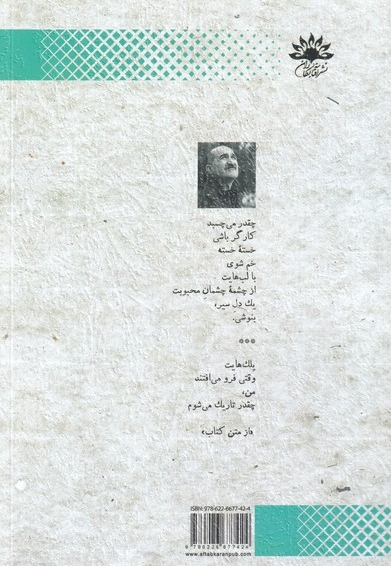 نشر آفتابکاران
چقدر می‌چسبد
کارگر باشی
خستهٔ خسته
خم شوی
با لب‌هایت
از چشمهٔ چشمان محبوبت
یك دل سیر،
بنوشی.
***
پلك‌هایت
وقتی فرو می‌افتند
من،
چقدر تاریك می‌شوم
«از متن کتاب»
ISBN: 978-622-6677-42-4
9 786226 677424
www.aftabkaranpub.com